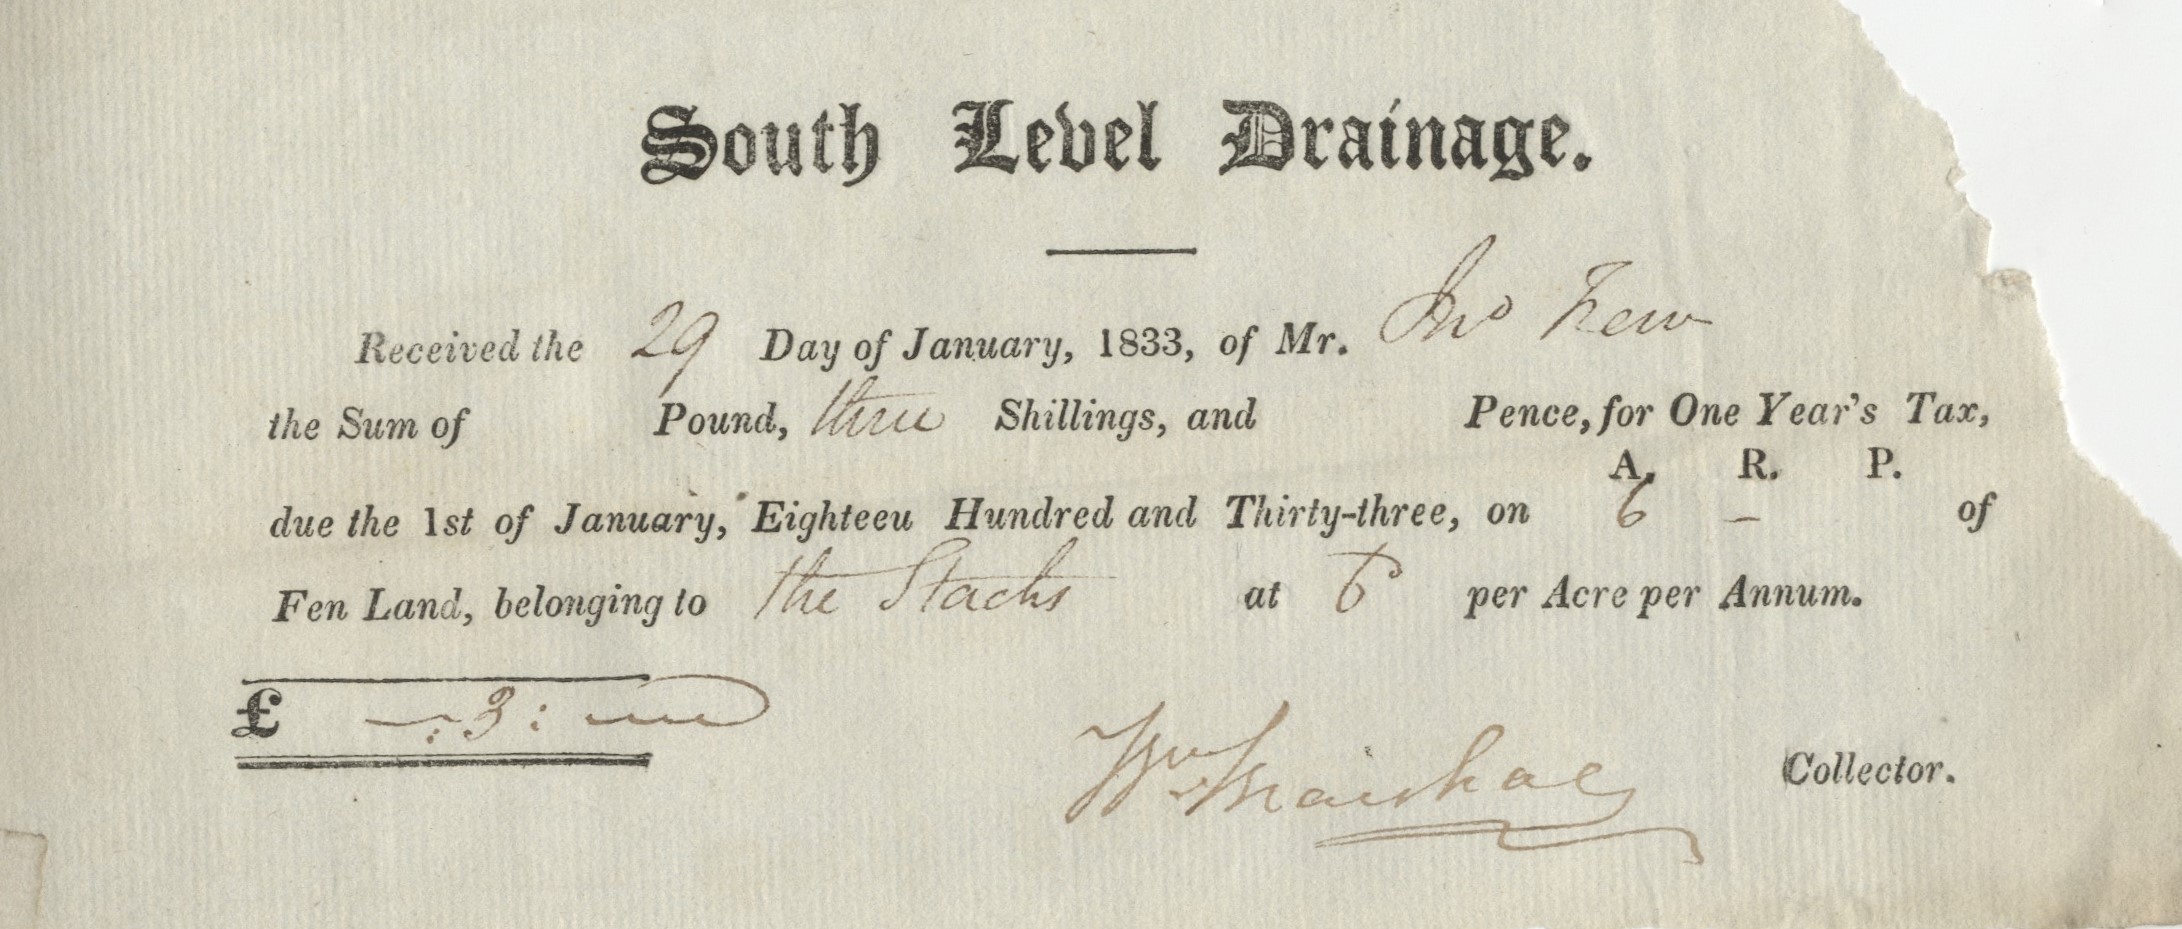 South Level Drainage.
Received the 29 Day of January, 1833, of Mr. Jno Frew
the Sum of Pound, three Shillings, and Pence, for One Year's Tax,
A. R. P.
due the 1st of January, Eighteeu Hundred and Thirty-three, on 6 – of
Fen Land, belonging to the at 6 per Acre per Annum.
£ — : 3 : —
Wm Marshal Collector.